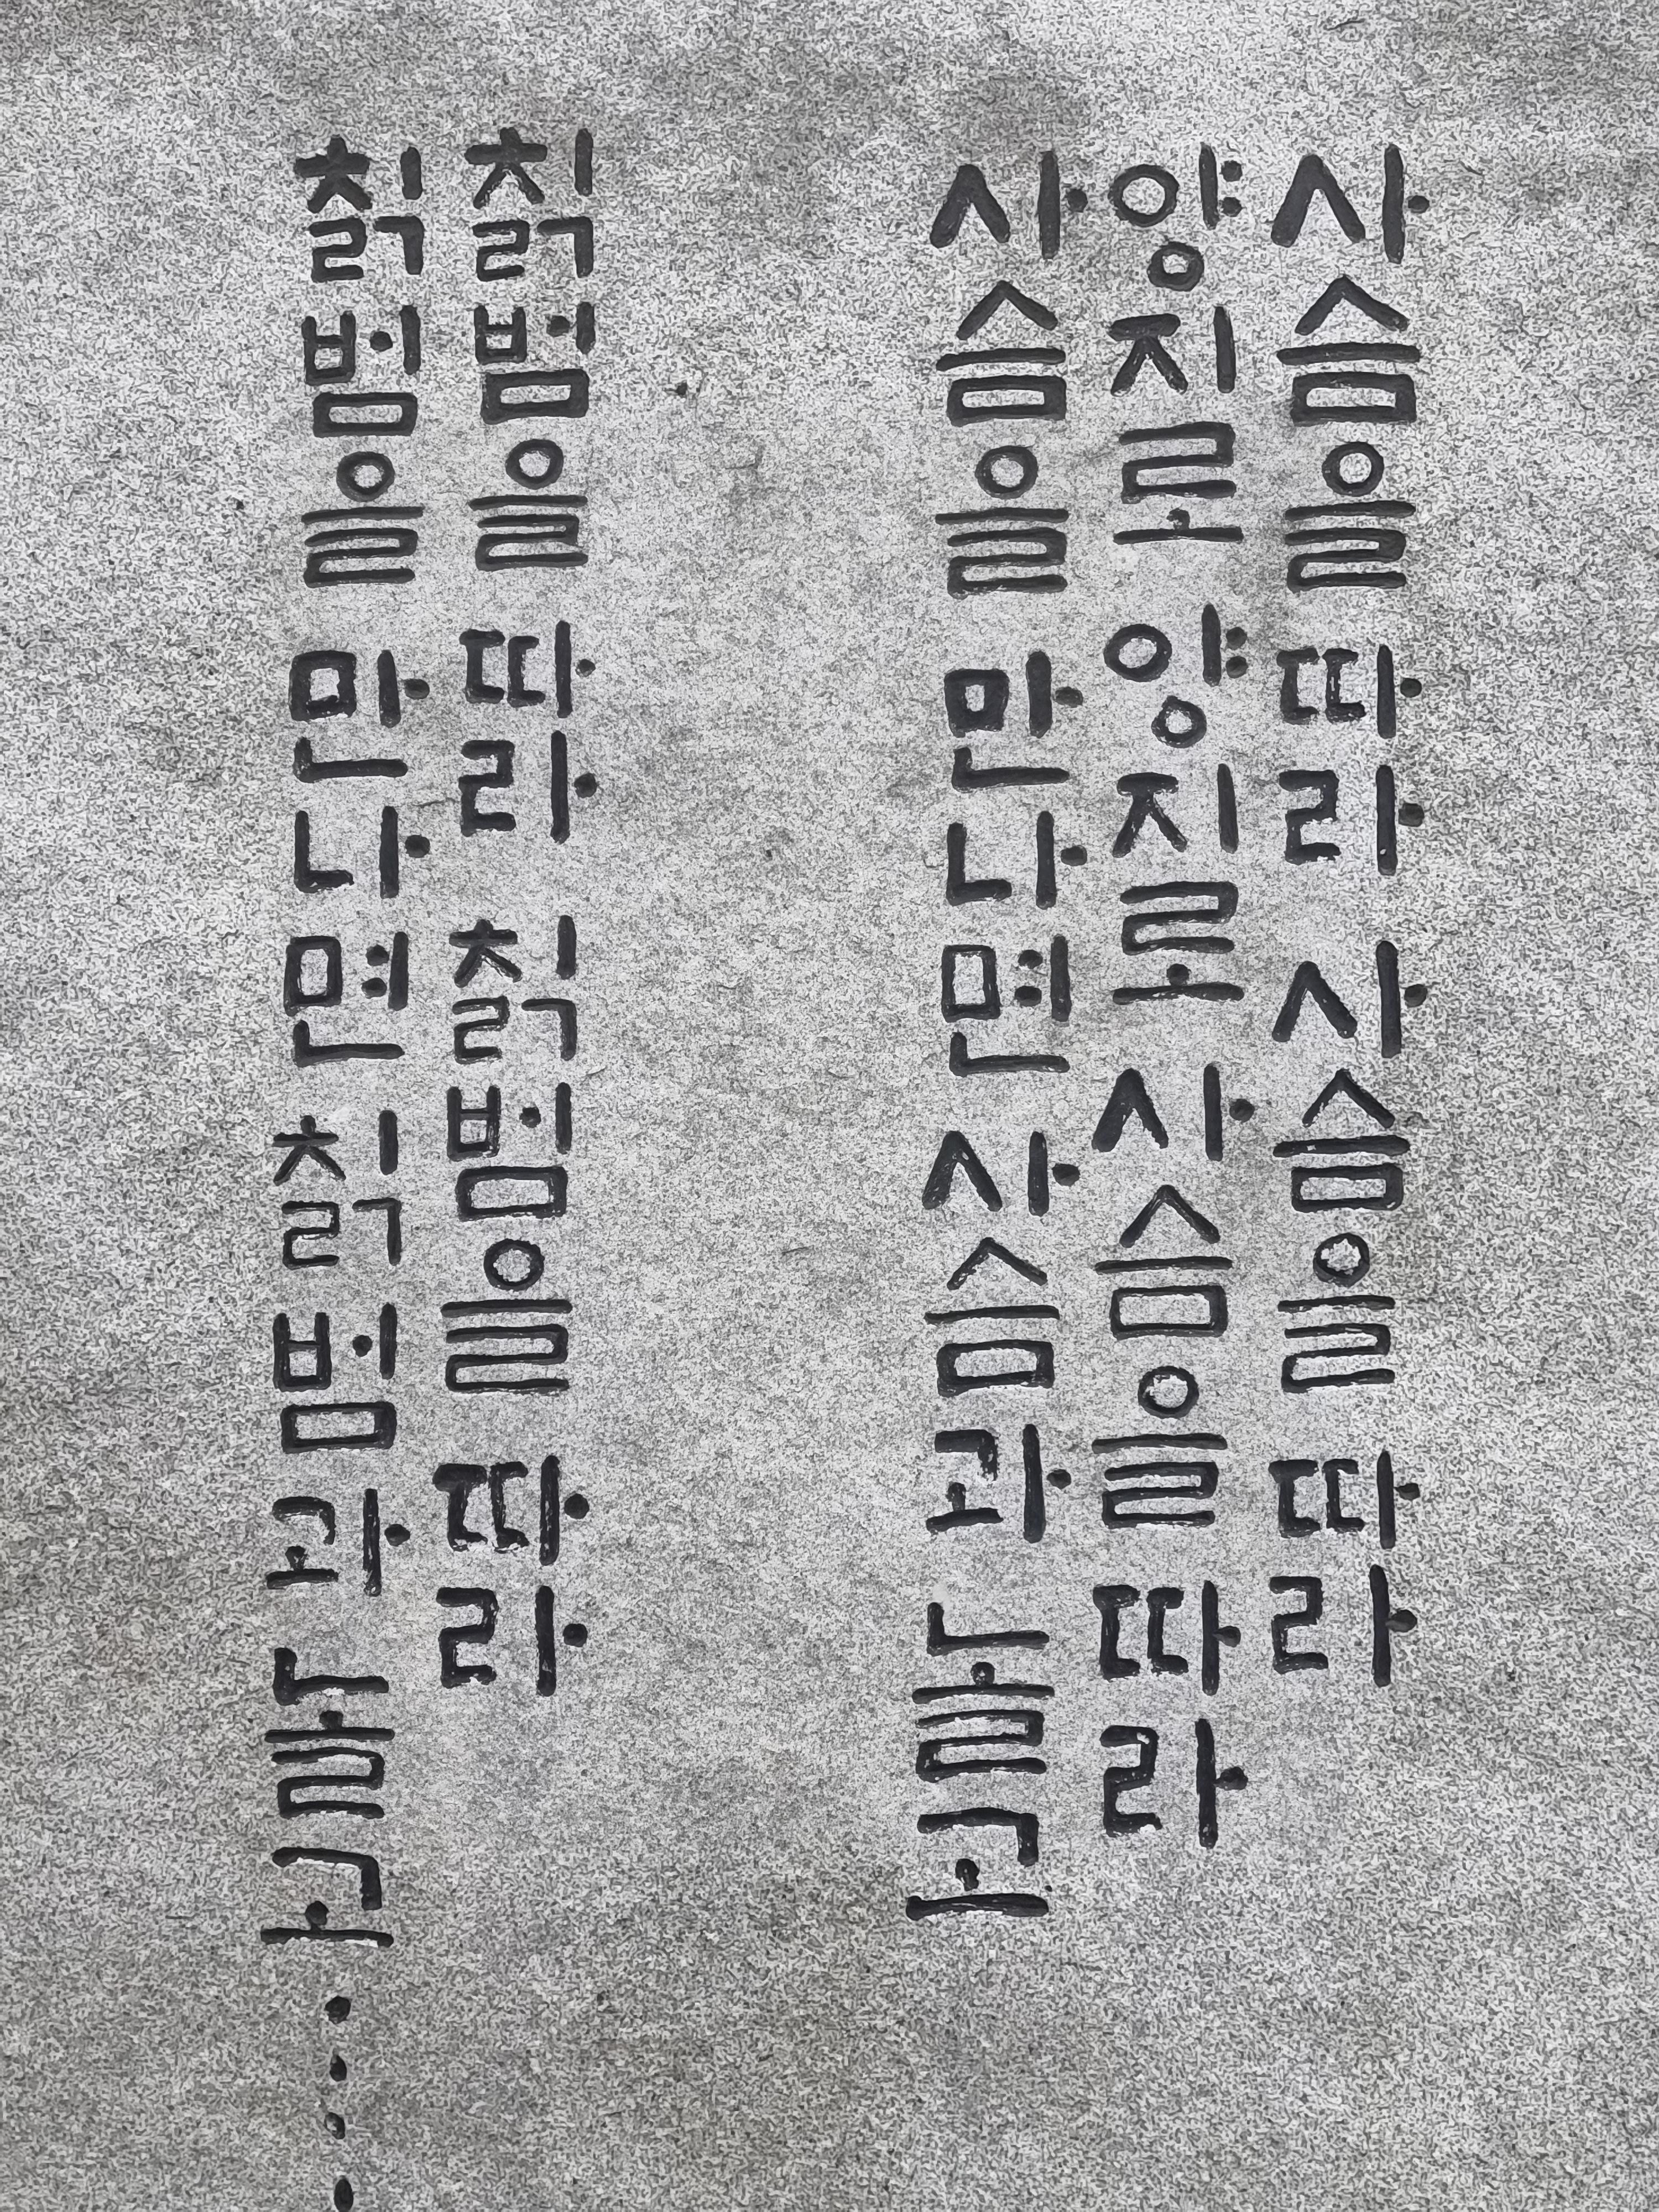 사슴을 따라 사슴을 따라
양지로 양지로 사슴을 따라
사슴을 만나면 사슴과 놀고
칡범을 따라 칡범을 따라
칡범을 만나면 칡범과 놀고....